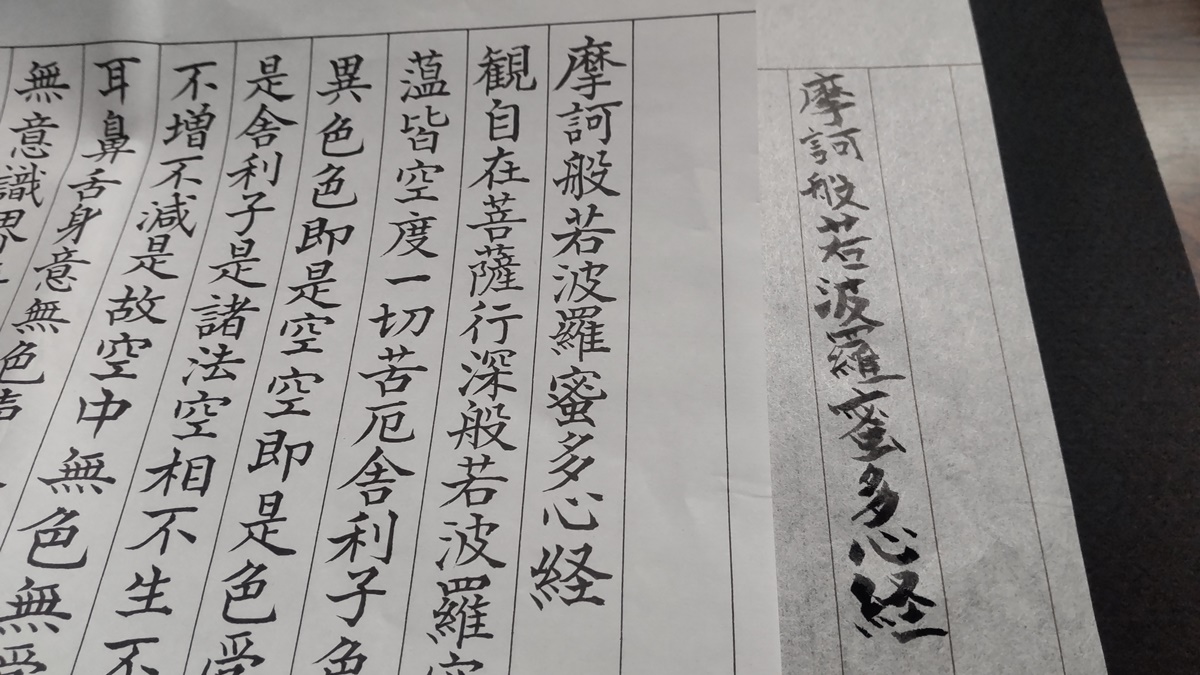 摩訶般若波羅蜜多心経
摩訶般若波羅蜜多心経
観自在菩薩行深般若波羅
薀皆空度一切苦厄舎利子色
異色色即是空空即是色受
是舎利子是諸法空相不生不
不増不減是故空中無色無受
耳鼻舌身意無色声
無意識界